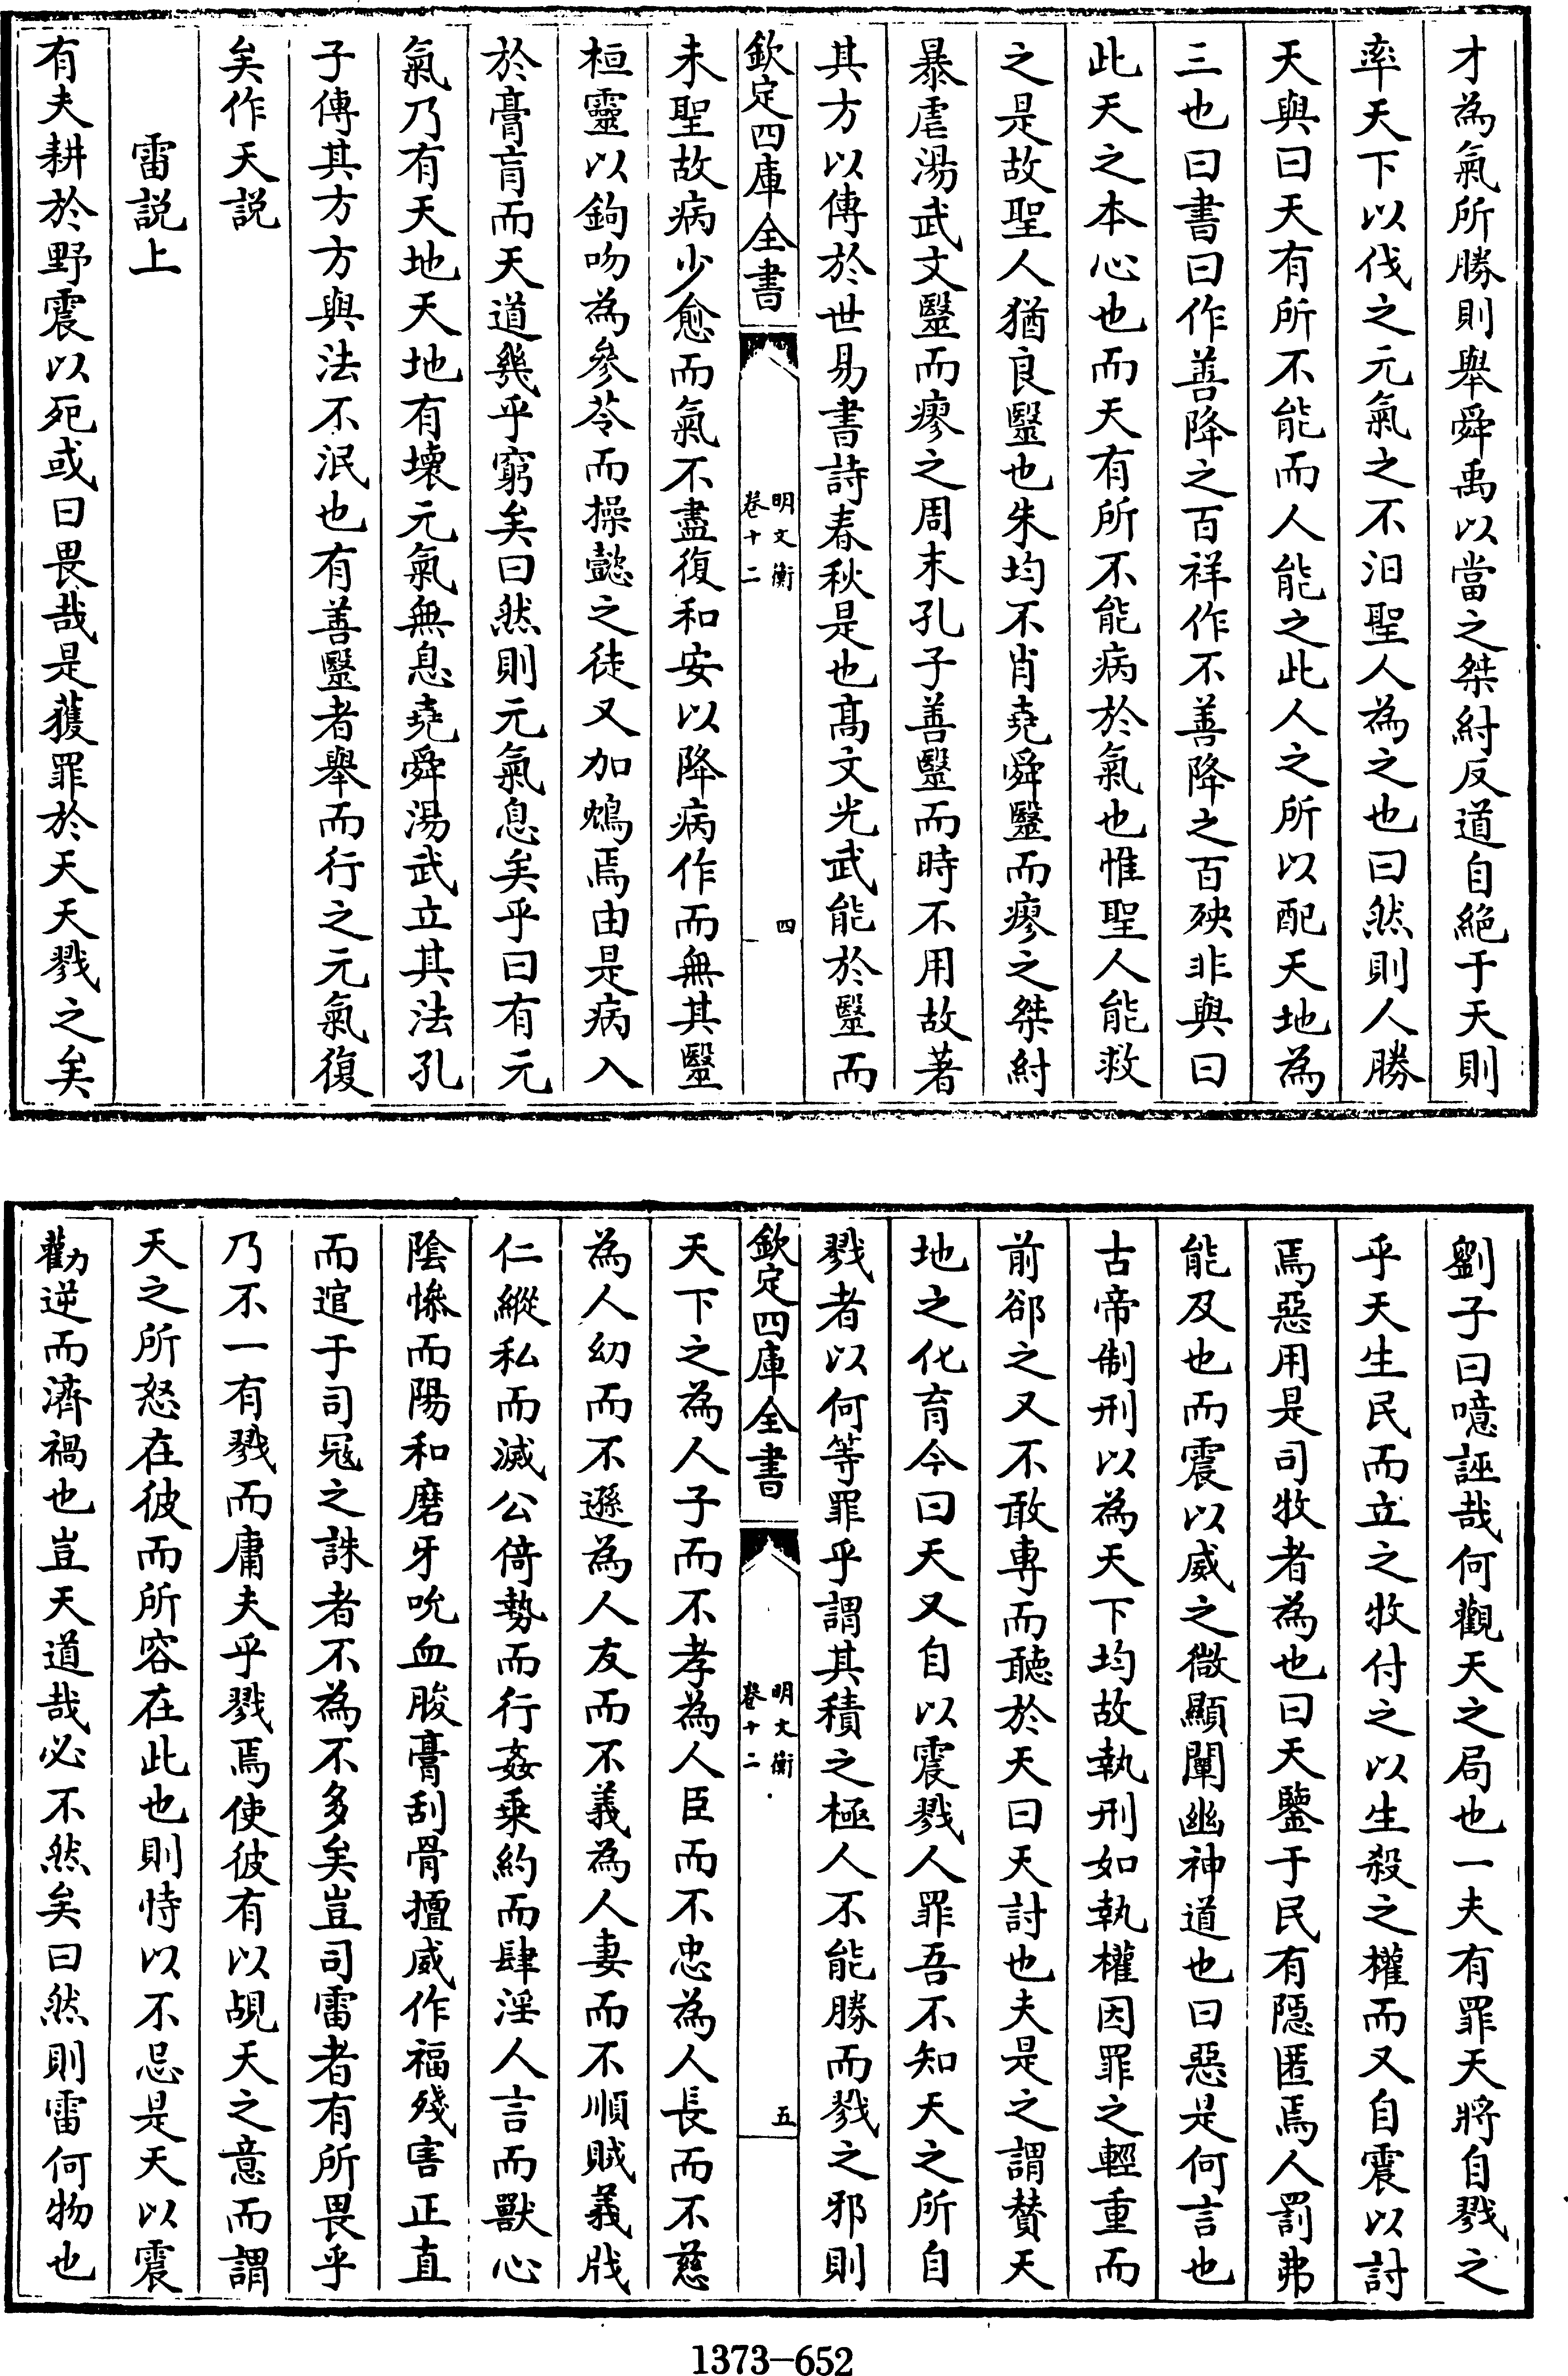 才為氣所勝則舉舜禹以當之桀紂反道自絕于天則
率天下以伐之元氣之不汩聖人為之也曰然則人勝
天與曰天有所不能而人能之此人之所以配天地為
三也曰書曰作善降之百祥作不善降之百殃非與曰
此天之本心也而天有所不能病於氣也惟聖人能救
之是故聖人猶良毉也朱均不肖堯舜毉而瘳之桀紂
暴虐湯武又毉而瘳之周末孔子善毉而時不用故著
其方以傳於世易書詩春秋是也高文光武能於毉而
欽定四庫全書
明文衡
卷十二
四
未聖故病少愈而氣不盡復和安以降病作而無其毉
桓靈以鉤吻為參苓而操懿之徒又加鴆焉由是病入
於膏肓而天道幾乎窮矣曰然則元氣息矣乎曰有元
氣乃有天地天地有壞元氣無息堯舜湯武立其法孔
子傳其方方與法不泯也有善毉者舉而行之元氣復
矣作天説
雷説上
有夫耕於野震以死或曰畏哉是獲罪於天天戮之矣
劉子曰噫誣哉何觀天之局也一夫有罪天將自戮之
乎天生民而立之牧付之以生殺之權而又自震以討
焉惡用是司牧者為也曰天鑒于民有隱匿焉人罰弗
能及也而震以威之微顯闡幽神道也曰惡是何言也
古帝制刑以為天下均故執刑如執權因罪之輕重而
前郤之又不敢専而聽於天曰天討也夫是之謂賛天
地之化育今曰天又自以震戮人罪吾不知天之所自
戮者以何等罪乎謂其積之極人不能勝而戮之邪則
欽定四庫全書
明文衡
卷十二
五
天下之為人子而不孝為人臣而不忠為人長而不慈
為人幼而不遜為人友而不義為人妻而不順賊義戕
仁縱私而滅公倚勢而行姦乗約而肆淫人言而獸心
陰慘而陽和磨牙吮血朘膏刮骨擅威作福殘害正直
而逭于司冦之誅者不為不多矣豈司雷者有所畏乎
乃不一有戮而庸夫乎戮焉使彼有以覘天之意而謂
天之所怒在彼而所容在此也則恃以不忌是天以震
勸逆而濟禍也豈天道哉必不然矣曰然則雷何物也
1373-652